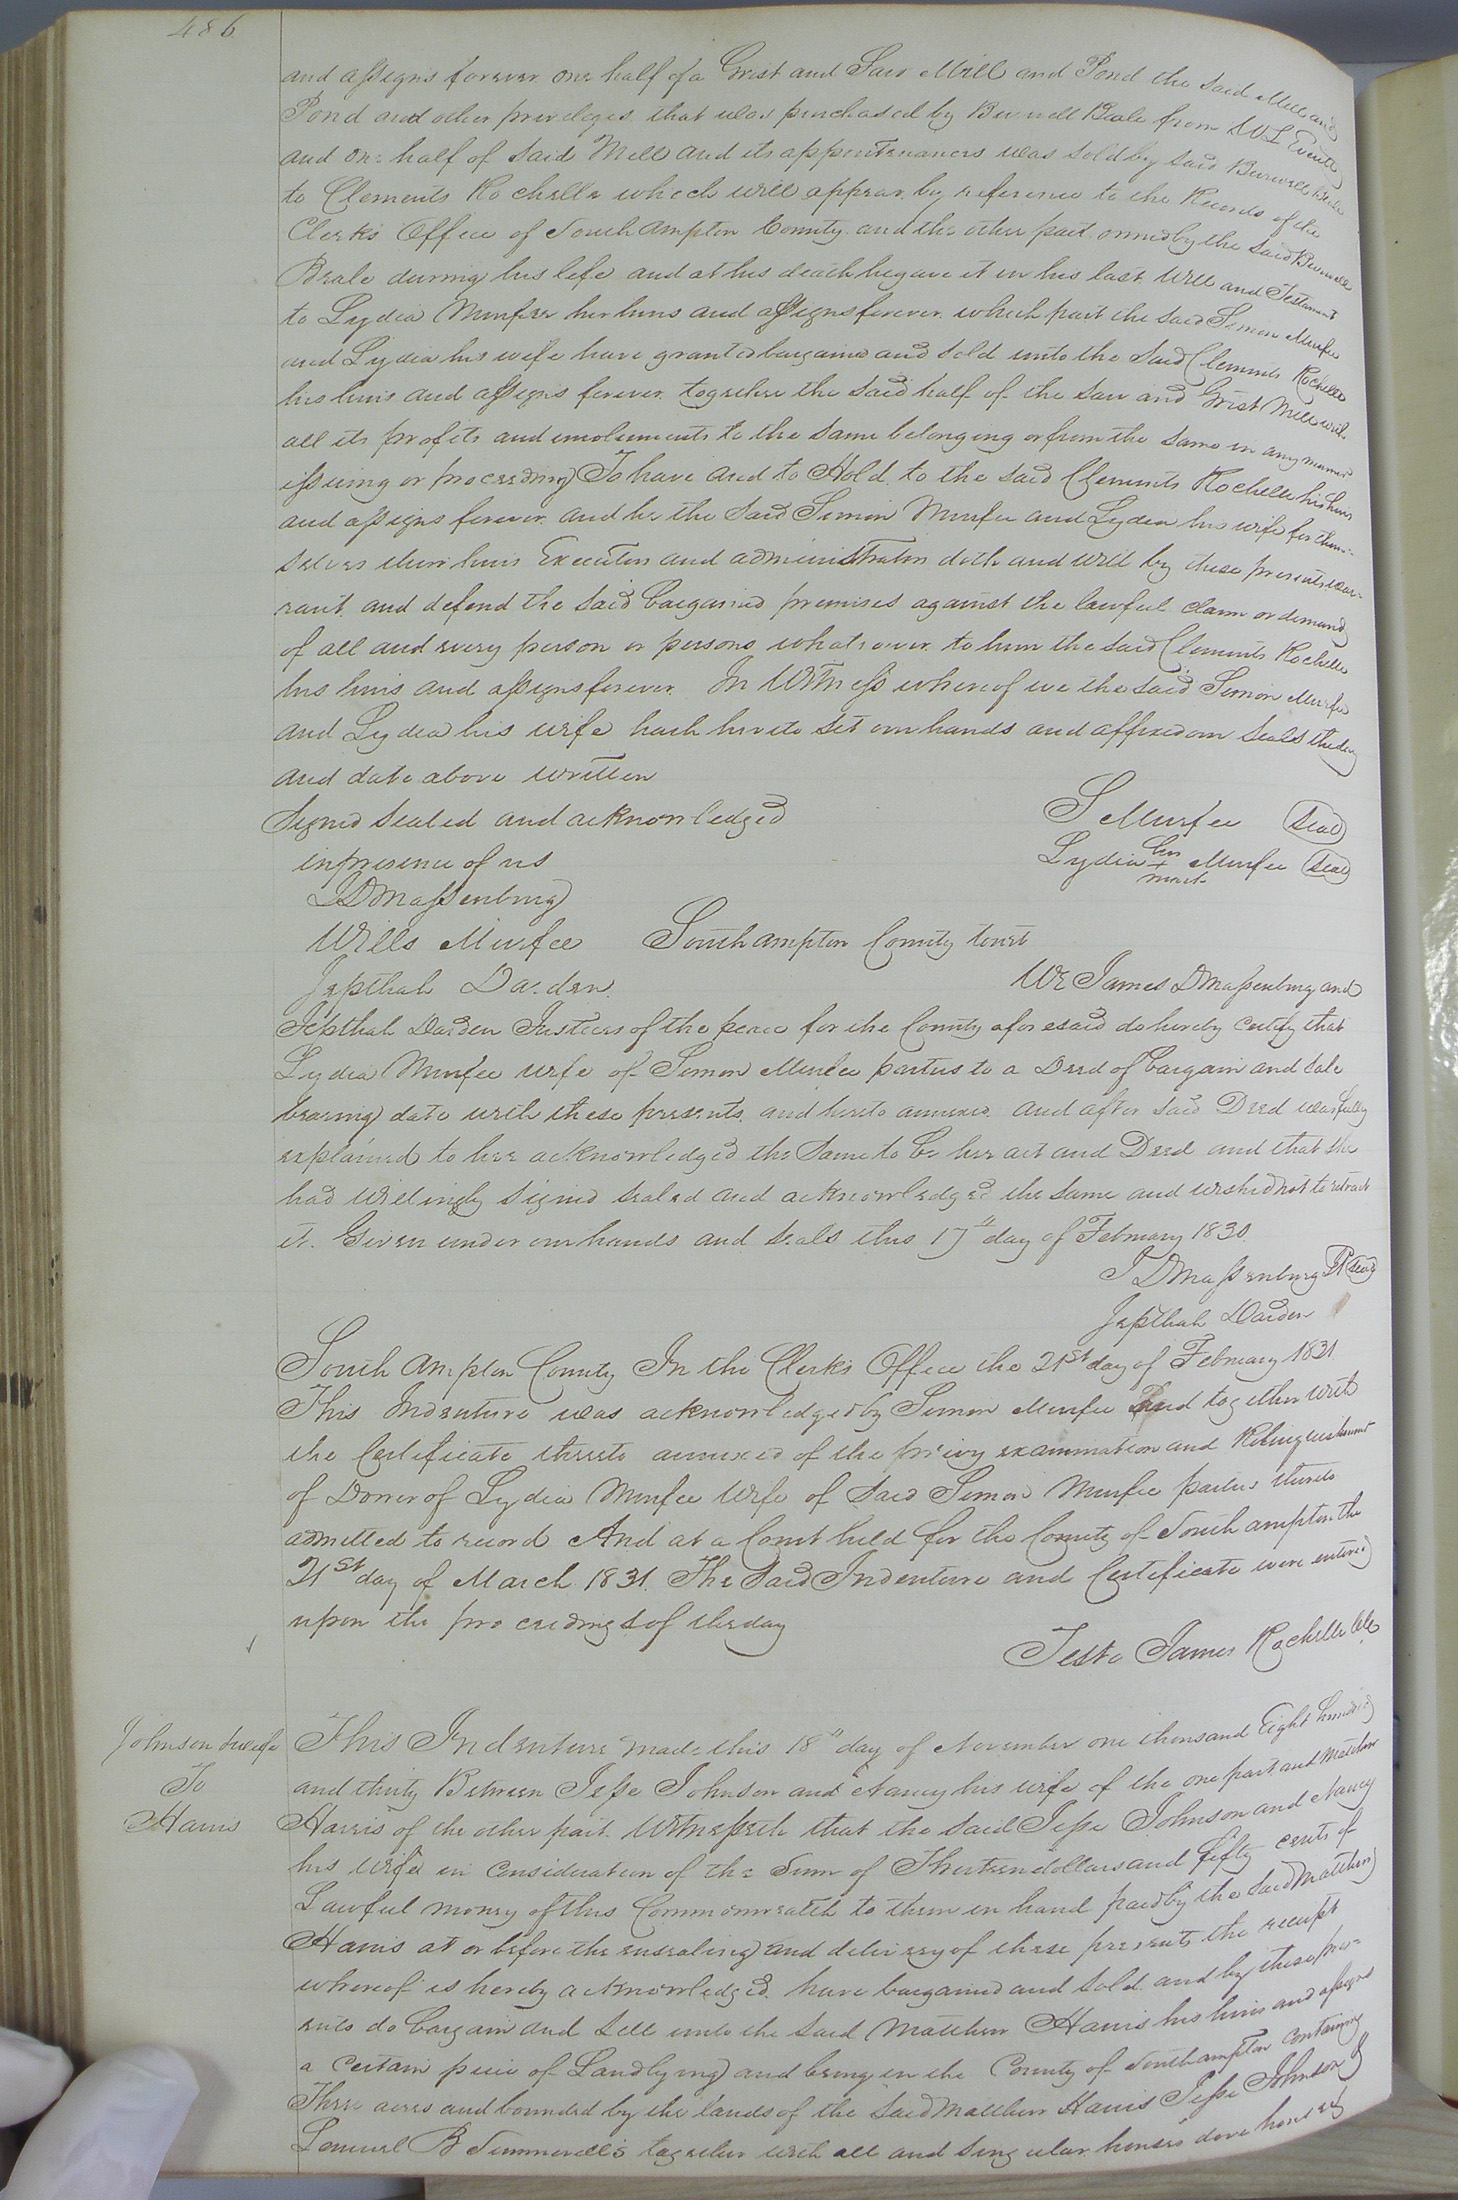 486
and assigns forever one half of a Grist and Saw Mill and Pond the said Mill and
Pond and other priveleges that was purchased by Burwell Beale from
and one half of said Mill and its appurtenances was sold by said Burwell Beale
to Clements Rochelle which will appear by reference to the Records of the
Clerks Office of Southampton County and the other part owned by the said Burwell
Beale during his life and at his death he gave it in his last Will and Testament
to Lydia Murfee her heirs and assigns forever which part the said Simon Murfee
and Lydia his wife have granted bargained and sold unto the said Clements Rochelle
his heirs and assigns forever together the said half of the saw and Grist Mill with
all its profits and emoluments to the same belonging or from the same in any manner
issuing or proceeding To have and to Hold to the said Clements Rochelle his heirs
and assigns forever and he the said Simon Murfee and Lydia his wife for them-
selves their heirs Executors and administrators doth and will by these presents war-
rant and defend the said bargained premises against the lawful claim or demand
of all and every person or persons whatsoever to him the said Clements Rochelle
his heirs and assigns forever In Witness whereof we the said Simon Murfee
and Lydia his wife hath hereto set our hands and affixed our seals the day
and date above written
Signed sealed and acknowledged
S Murfee (Seal)
in presence of us
Lydia her mark Murfee (Seal)
J D Massenburg
Wills Murfee Southampton County Court
Jepthah Darden
We James D Massenburg and
Jepthah Darden Justices of the peace for the County aforesaid do hereby certify that
Lydia Murfee wife of Simon Murfee parties to a Deed of bargain and sale
bearing date with these presents and hereto annexed and after said Deed was fully
explained to her acknowledged the same to be her act and Deed and that she
had willingly signed sealed and acknowledged the same and wished not to retract
it. Given under our hands and seals this 17th day of February 1830.
J D Massenburg JP (Seal)
Jepthah Darden
Southampton County In the Clerks Office the 21st day of February 1831
This Indenture was acknowledged by Simon Murfee and together with
the Certificate thereto annexed of the privy examination and Relinquishment
of Dower of Lydia Murfee Wife of said Simon Murfee parties thereto
admitted to record And at a Court held for the County of Southampton the
21st day of March 1831. The Said Indenture and Certificate were entered
upon the proceedings of the day
Teste James Rochelle Clk
Johnson & wife
To
Harris
This Indenture made this 18th day of November one thousand Eight hundred
and thirty Between Jesse Johnson and Nancy his wife of the one part and Matthew
Harris of the other part Witnesseth that the said Jesse Johnson and Nancy
his wife in consideration of the Sum of Thirteen dollars and fifty cents of
Lawful money of this Commonwealth to them in hand paid by the said Matthew
Harris at or before the ensealing and delivery of these presents the receipt
whereof is hereby acknowledged have bargained and sold and by these pres-
ents do bargain and sell unto the said Matthew Harris his heirs and assigns
a certain piece of Land lying and being in the County of Southampton containing
Three acres and bounded by the lands of the said Matthew Harris Jesse Johnson &
Lemuel B Summerells together with all and singular houses dove houses